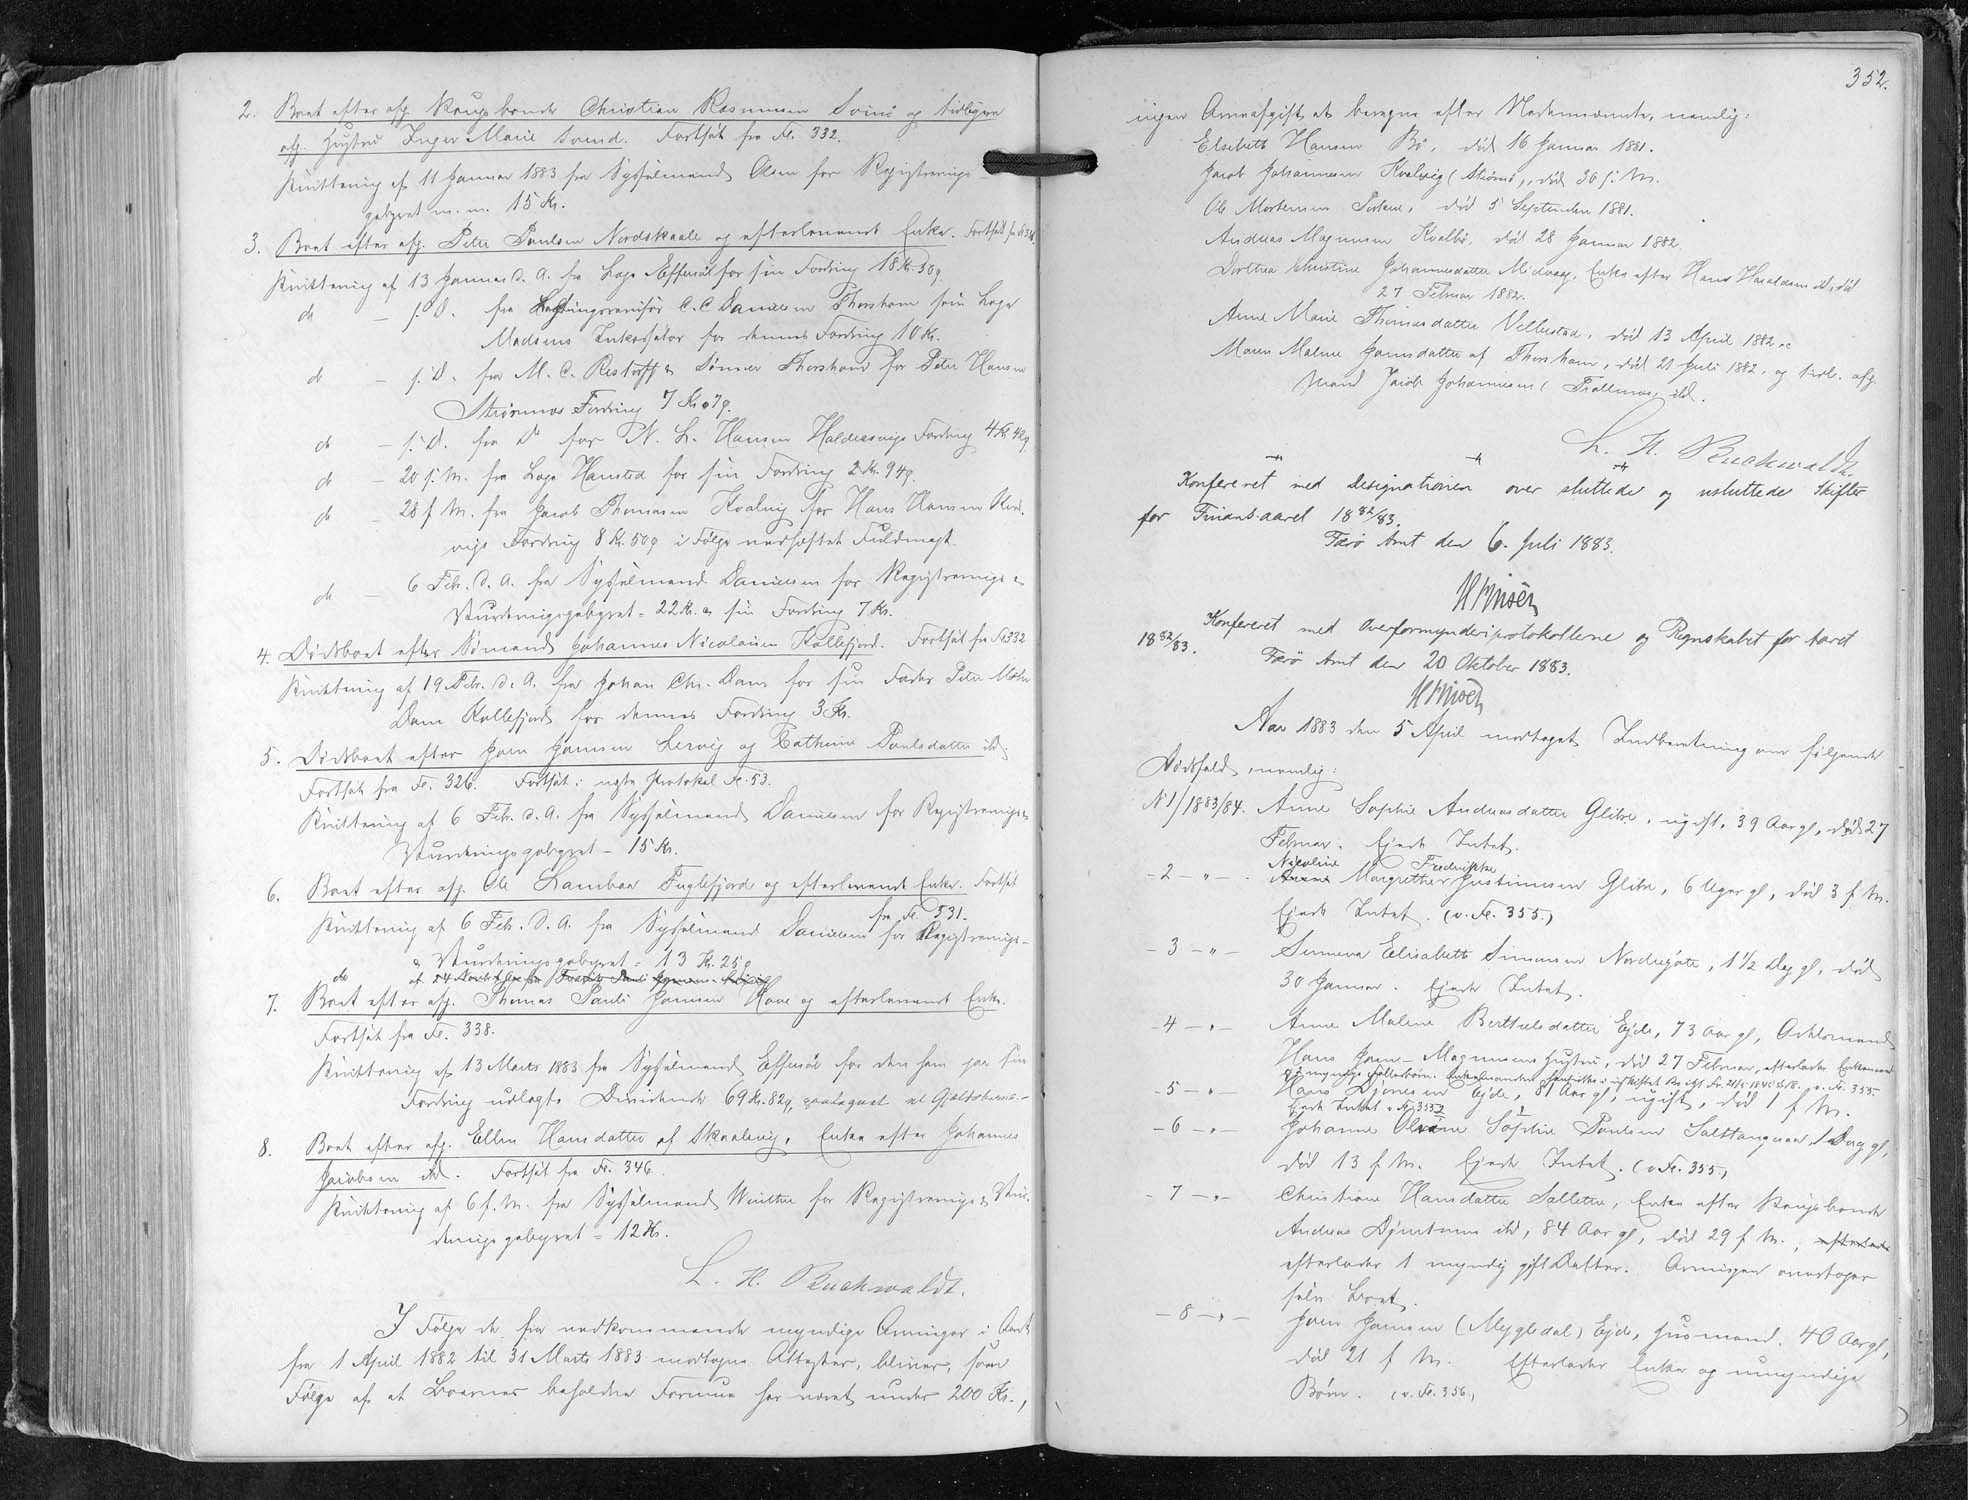 2. Boet efter afg. Kongsbonde Christian Rasmussen Svinø og tidligere
afg. Hustru Inger Marie Svend. Fortsat fra Fo. 332.
Kvittering af 11 Januar 1883 fra Sysselmand Olsen for Registrerings-
gebyret m.m. 15 Kr.
3. Boet efter afg. Peter Poulsen Nordskaale og efterlevende Enke. Fortsat fra Fo
Kvittering af 13 Januar d. A. fra Læge Effersøe for sin Fordring 18 Kr. 30 ø.
do — s. D. fra Lagtingsrevisor C. C. Danielsen Thorshavn som Læge
Madsens Inkassator for dennes Fordring 10 Kr.
do — s. D. fra M. C. Restorff & Sønner Thorshavn for Peter Hansen
Strømnæs Fordring 7 Kr. 07 ø.
do — s. D. fra Do for N. L. Hansen Haldersvigs Fordring 4 Kr. 42 ø.
do — 20 s. M. fra Læge Hansted for sin Fordring 2 Kr. 94 ø.
do — 28 s. M. fra Jacob Thomasen Kvalvig for Hans Hansen
vigs Fordring 8 Kr. 50 ø i Følge vedhæftet Fuldmagt.
do — 6 Feb. d. A. fra Sysselmand Danielsen for Registrerings- &
Vurderingsgebyret = 22 Kr. & sin Fordring 7 Kr.
4. Dødsboet efter Sømand Johannes Nicolaisen Kollefjord. Fortsat fra Fo 332
Kvittering af 19 Feb. d. A. fra Johan Chr. Dam for sin Fader Peter
Dam Kollefjord for dennes Fordring 3 Kr.
5. Dødsboet efter Joen Joensen Lervig og Cathrine Poulsdatter ibd.
Fortsat fra Fo. 326. Fortsat i næste Protokol Fo. 53.
Kvittering af 6 Feb. d. A. fra Sysselmand Danielsen for Registrerings &
Vurderingsgebyret = 15 Kr.
6. Boet efter afg. Ole Lambaa Fuglefjord og efterlevende Enke. Fortsat
fra Fo. 331.
Kvittering af 6 Feb. d. A. fra Sysselmand Danielsen for Registrerings-
& Vurderingsgebyret = 13 Kr. 25 ø
do af 24
7. Boet efter afg. Thomas Pauli Joensen Hove og efterlevende Enke.
Fortsat fra Fo. 338.
Kvittering af 13 Marts 1883 fra Sysselmand Effersøe for den ham paa sin
Fordring udlagte Dividende 69 Kr. 82 ø,
8. Boet efter afg. Ellen Hansdatter af Skaalevig, Enke efter Johannes
Jacobsen ibd. Fortsat fra Fo. 346.
Kvittering af 6 f. M. fra Sysselmand Winther for Registrerings & Vur-
deringsgebyret = 12 Kr.
L. H. Buchwaldt.
I Følge de fra vedkommende myndige Arvinger i Aaret
fra 1 April 1882 til 31 Marts 1883 modtagne Attester, bliver, som
Følge af at Boernes beholdne Formue har været under 200 Kr.,
352.
ingen Arveafgift at beregne efter Nedennævnte, nemlig:
Elsebeth Hansen Bø, død 16 Januar 1881.
Jacob Johannesen Kvalvig (Strømø), død 30 s. M.
Ole Mortensen Porkere, død 5 September 1881.
Andreas Magnussen Kvalbø, død 28 Januar 1882.
Dorthea Christine Johannesdatter Midvaag, Enke efter Hans Haraldsen ibd, død
27 Februar 1882.
Anne Marie Thomasdatter Velbestad, død 13 April 1882 &
Maren Malene Joensdatter af Thorshavn, død 21 Juli 1882, og tidl. afg.
Mand Jacob Johannesen (Trøllenæs) ibd.
L. H. Buchwaldt.
Konfereret med Designationen over sluttede og usluttede Skifter
for Finantsaaret 1882/83.
Færø Amt den 6. Juli 1883.
H Finsen
Konfereret med Overformynderiprotokollerne og Regnskabet for Aaret
1882/83.
Færø Amt den 20 Oktober 1883.
H Finsen
Aar 1883 den 5 April modtoges Indberetning om følgende
Dødsfald, nemlig:
No 1/1883/84. Anne Sophie Andreasdatter Glibre, ugift, 39 Aar gl, død 27
Februar. Ejede Intet.
Nicoline Frederikke
- 2 - " - Anne Margrethe Justinussen Glibre, 6 Uger gl, død 3 f. M.
Ejede Intet. (v. Fo. 355.)
- 3 - " - Sunneva Elisabeth Simonsen Nordregøte, 1 1/2 Dag gl, død
30 Januar. Ejede Intet.
- 4 - " - Anne Malene Berthelsdatter Ejde, 73 Aar gl, Odelsmand
Hans Joen Magnussens Hustru, død 27 Februar, efterlader Enkemand
myndige Fællesbørn. Enkemanden v. Fo. 355.
- 5 - " - Hans Djonesen Ejde, 81 Aar gl, ugift, død 1 f. M.
Ejede Intet v. Fo 355
- 6 - " - Johanne Olevine Sophie Poulsen Saltangaraa, 1 Dag gl,
død 13 f. M. Ejede Intet. (v. Fo. 355.)
- 7 - " - Christiane Hansdatter Sælletræ, Enke efter Kongsbonde
Andreas Djonesen ibd, 84 Aar gl, død 29 f. M., efterlader
efterlader 1 myndig gift Datter. Arvingen overtager
selv Boet.
- 8 - " - Joen Joensen (Mygledal) Ejde, Husmand, 40 Aar gl,
død 21 f. M. Efterlader Enke og umyndige
Børn. (v. Fo. 356.)